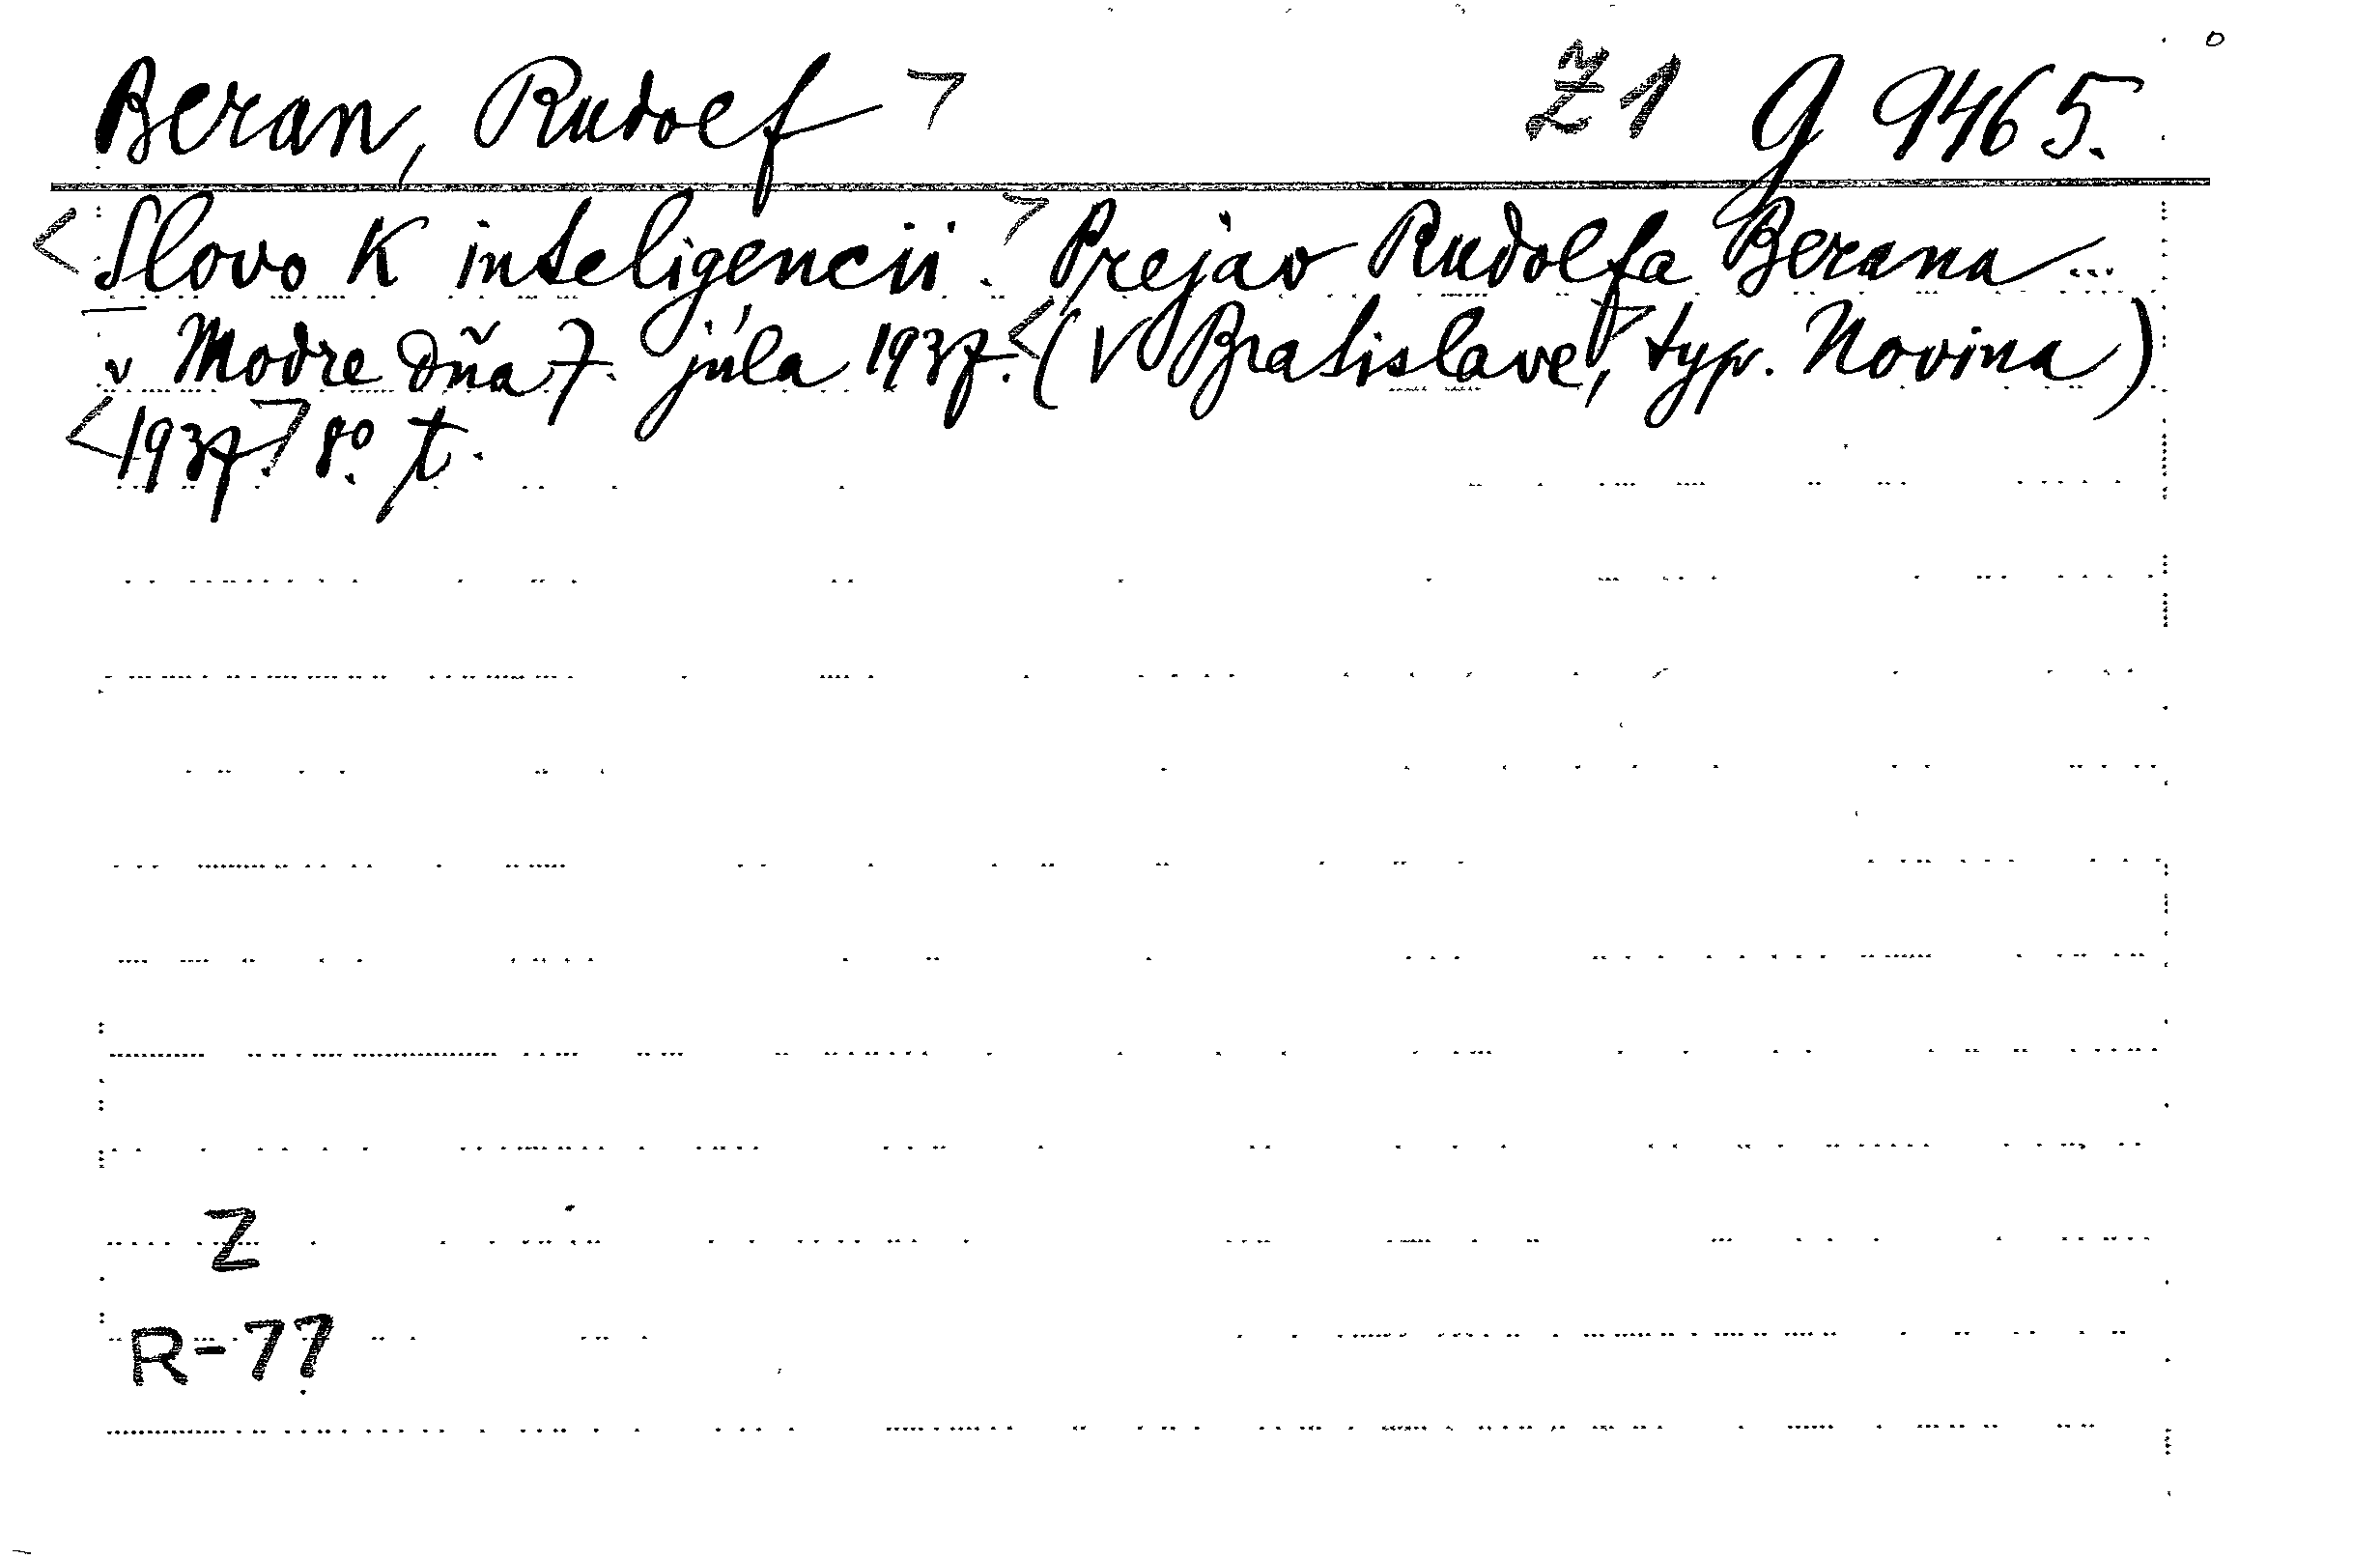 Beran, Rudolf ㄱ Z1 g 9465.
<Slovo k inteligencii.ㄱ Prejav Rudolfa Berana...
v Modre dňa 7. júla 1937.<(V Bratislave,ㄱ typ. Novina)
<1937.ㄱ 8º. t.
Z
R-77